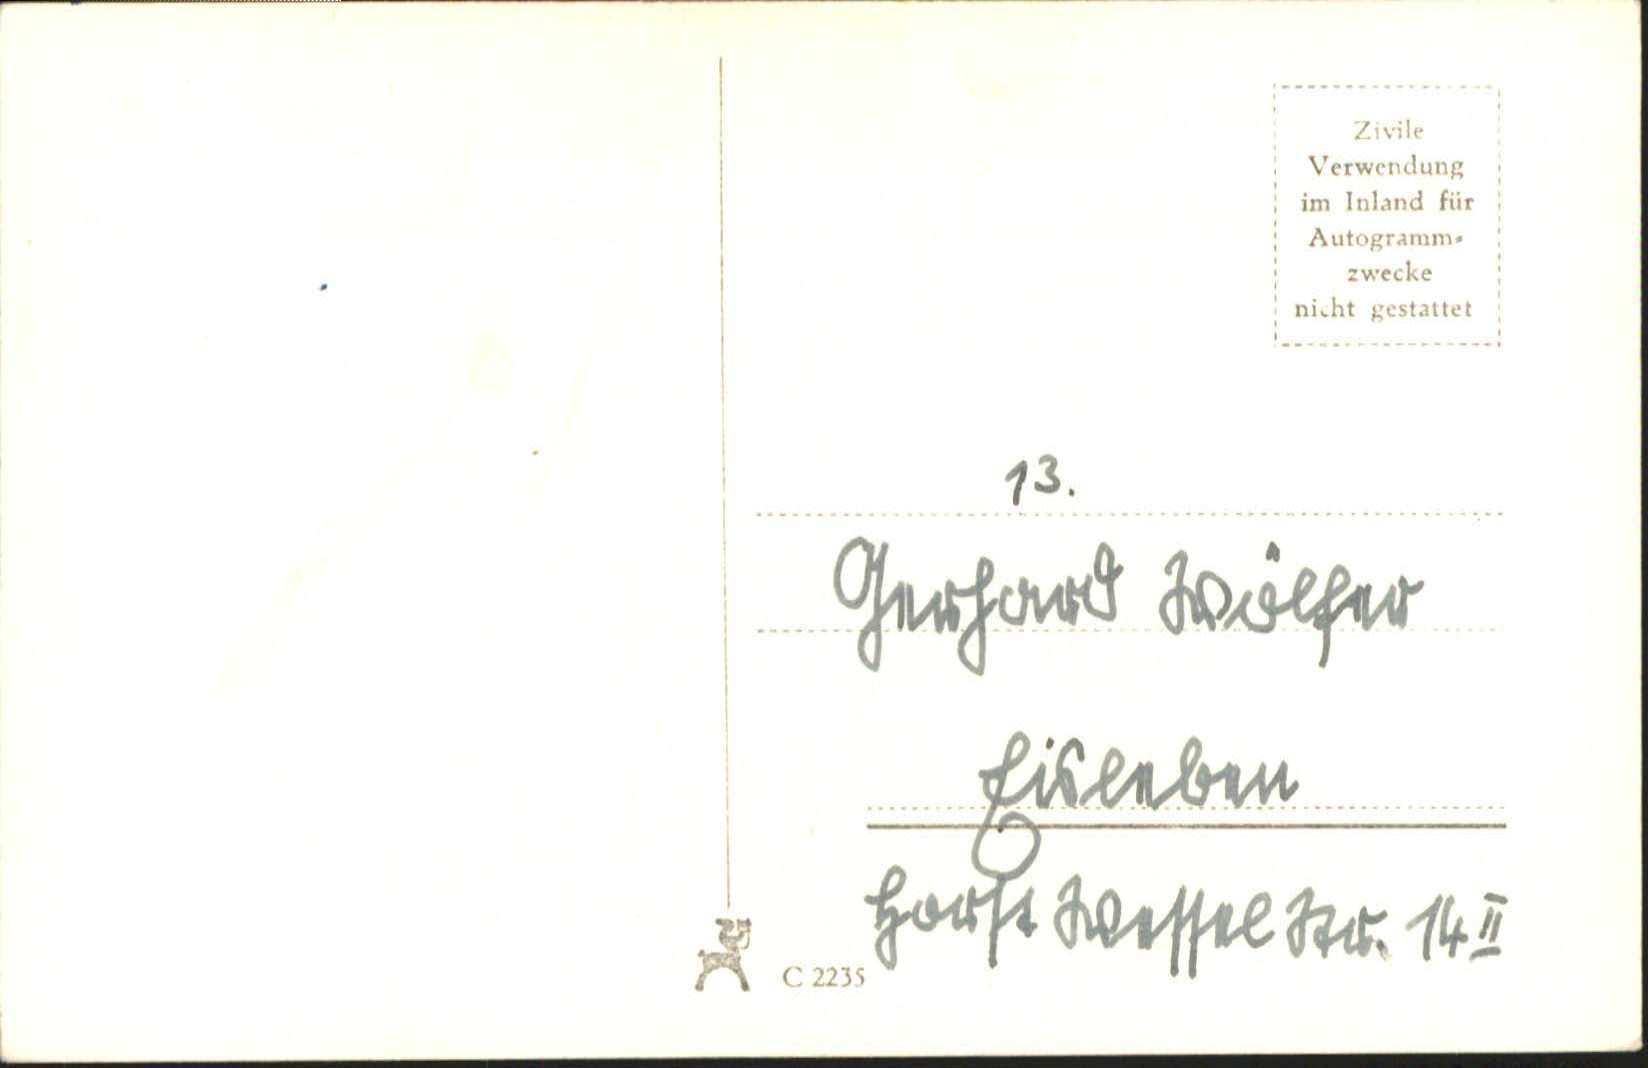 Zivile
Verwendung
im Inland für
Autogramm-
zwecke
nicht gestattet
13.
Gerhard Wölfer
Eisleben
Horst Wessel Str. 14 II
C 2235